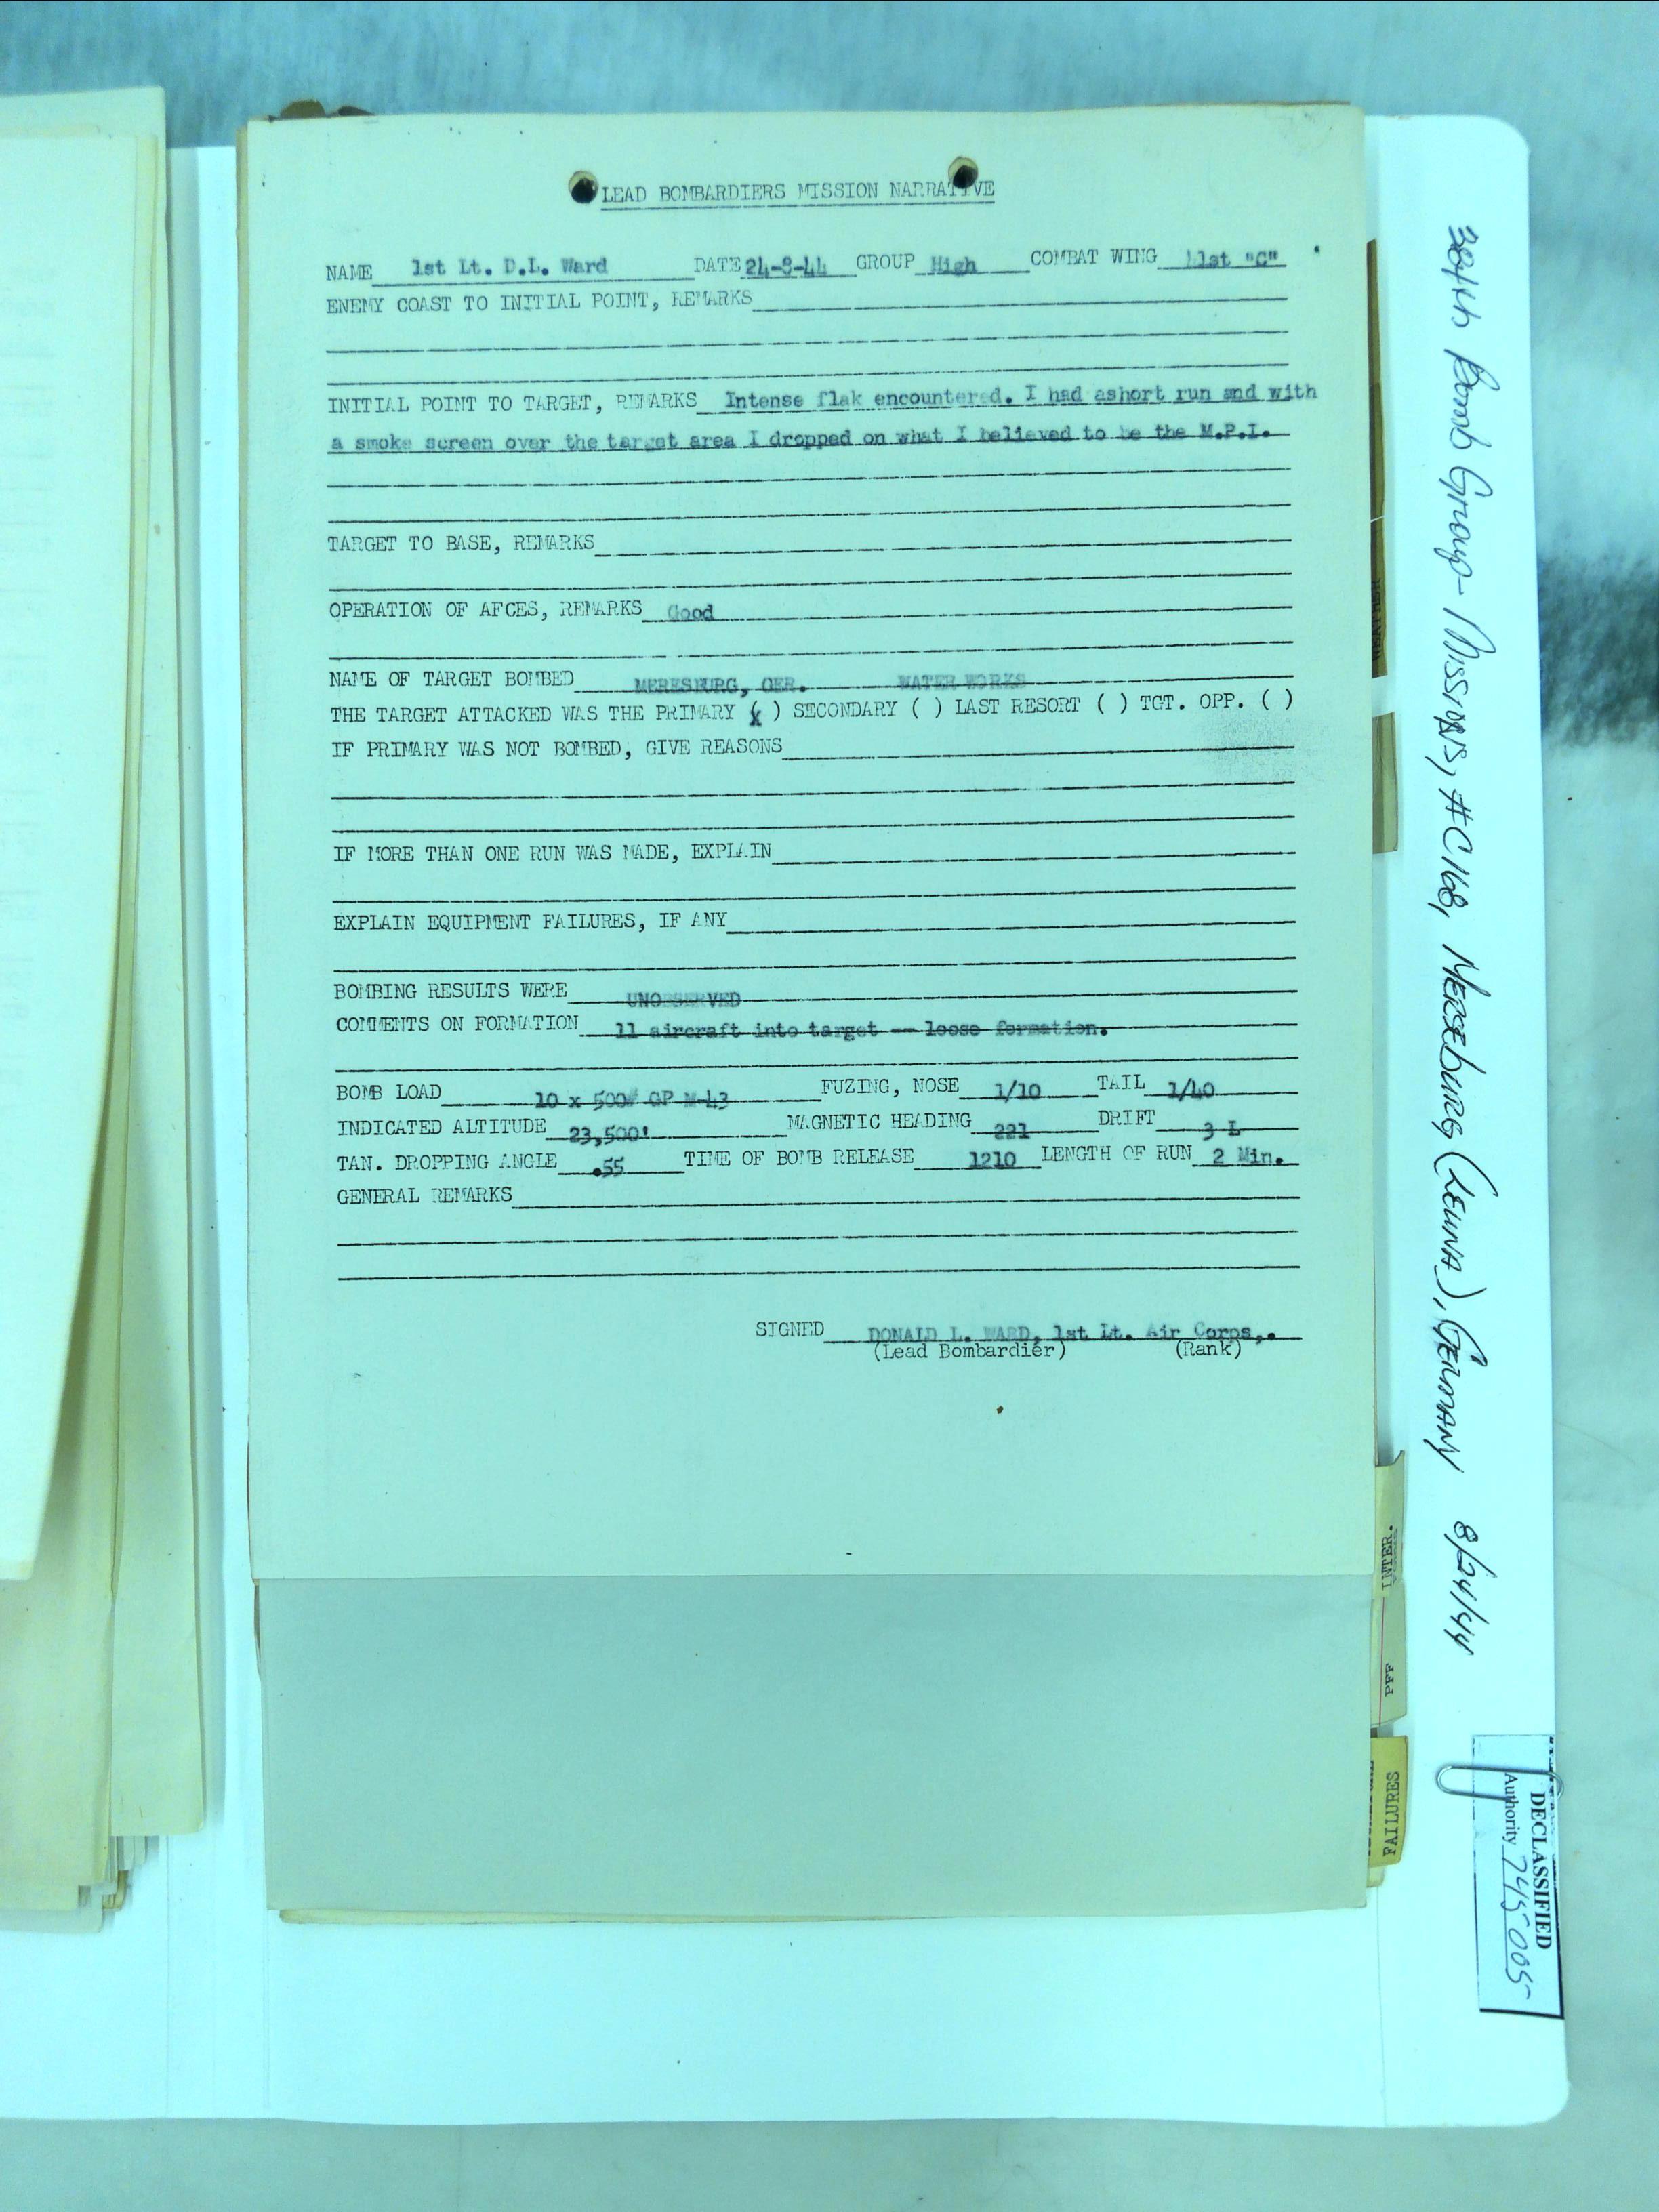 LEAD BOMBARDIERS MISSION NARRATIVE
NAME 1st Lt. D.L. Ward DATE 24-8-44 GROUP High COMBAT WING 41st "C"
ENEMY COAST TO INITIAL POINT, REMARKS
INITIAL POINT TO TARGET, REMARKS Intense flak encountered. I had ashort run and with
a smoke screen over the target area I dropped on what I believed to be the M.P.I.
TARGET TO BASE, REMARKS
OPERATION OF AFCES, REMARKS Good
NAME OF TARGET BOMBED MERESBURG, GER. WATER WORKS
THE TARGET ATTACKED WAS THE PRIMARY (x) SECONDARY ( ) LAST RESORT ( ) TGT. OPP. ( )
IF PRIMARY WAS NOT BOMBED, GIVE REASONS
IF MORE THAN ONE RUN WAS MADE, EXPLAIN
EXPLAIN EQUIPMENT FAILURES, IF ANY
BOMBING RESULTS WERE UNOBSERVED
COMMENTS ON FORMATION 11 aircraft into target -- loose formation.
BOMB LOAD 10 x 500# GP M-43 FUZING, NOSE 1/10 TAIL 1/40
INDICATED ALTITUDE 23,500' MAGNETIC HEADING 221 DRIFT 3 L
TAN. DROPPING ANGLE .55 TIME OF BOMB RELEASE 1210 LENGTH OF RUN 2 Min.
GENERAL REMARKS
SIGNED DONALD L. WARD, 1st Lt. Air Corps,.
(Lead Bombardier) (Rank)
384th Bomb Group - Missions, #C168, MERSEBURG (LEUNA), GERMANY 8/24/44
WEATHER
INTER.
PFF
FAILURES
DECLASSIFIED
Authority 745005